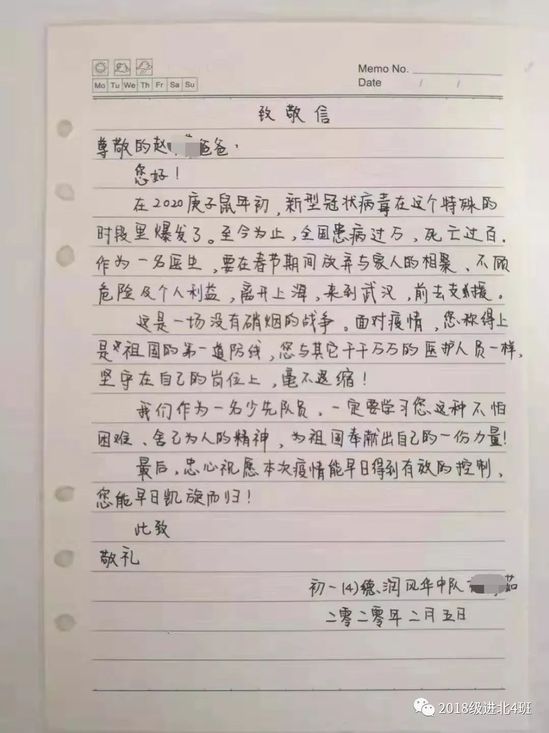 Memo No.
Mo Tu We Th Fr Sa Su
Date / /
致敬信
尊敬的赵爸爸：
您好！
在2020庚子鼠年初，新型冠状病毒在这个特殊的
时段里爆发了。至今为止，全国患病过万，死亡过百.
作为一名医生，要在春节期间放弃与家人的相聚、不顾
危险及个人利益，离开上海，来到武汉，前去支援。
这是一场没有硝烟的战争。面对疫情，您称得上
是祖国的第一道防线，您与其它千千万万的医护人员一样，
坚守在自己的岗位上，毫不退缩！
我们作为一名少先队员，一定要学习您这种不怕
困难、舍己为人的精神，为祖国奉献出自己的一份力量！
最后，忠心祝愿本次疫情能早日得到有效的控制，
您能早日凯旋而归！
此致
敬礼
初一（4）德润风华中队 茹
二零二零年二月五日
2018级进北4班